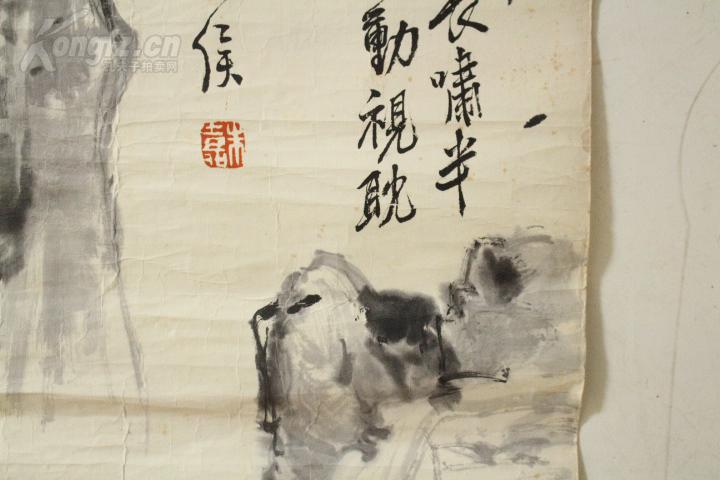 長嘯半
勤視耽
侯
Kongfz.cn
孔夫子拍卖网